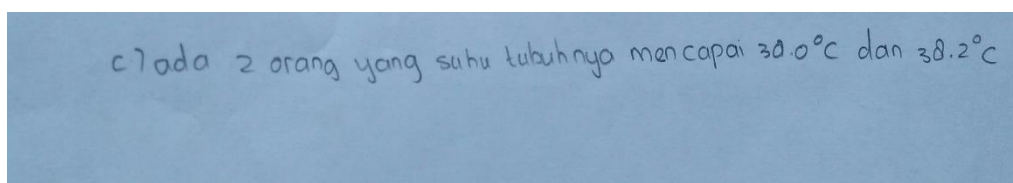 c) ada 2 orang yang suhu tubuhnya mencapai 38.0°C dan 38.2°C